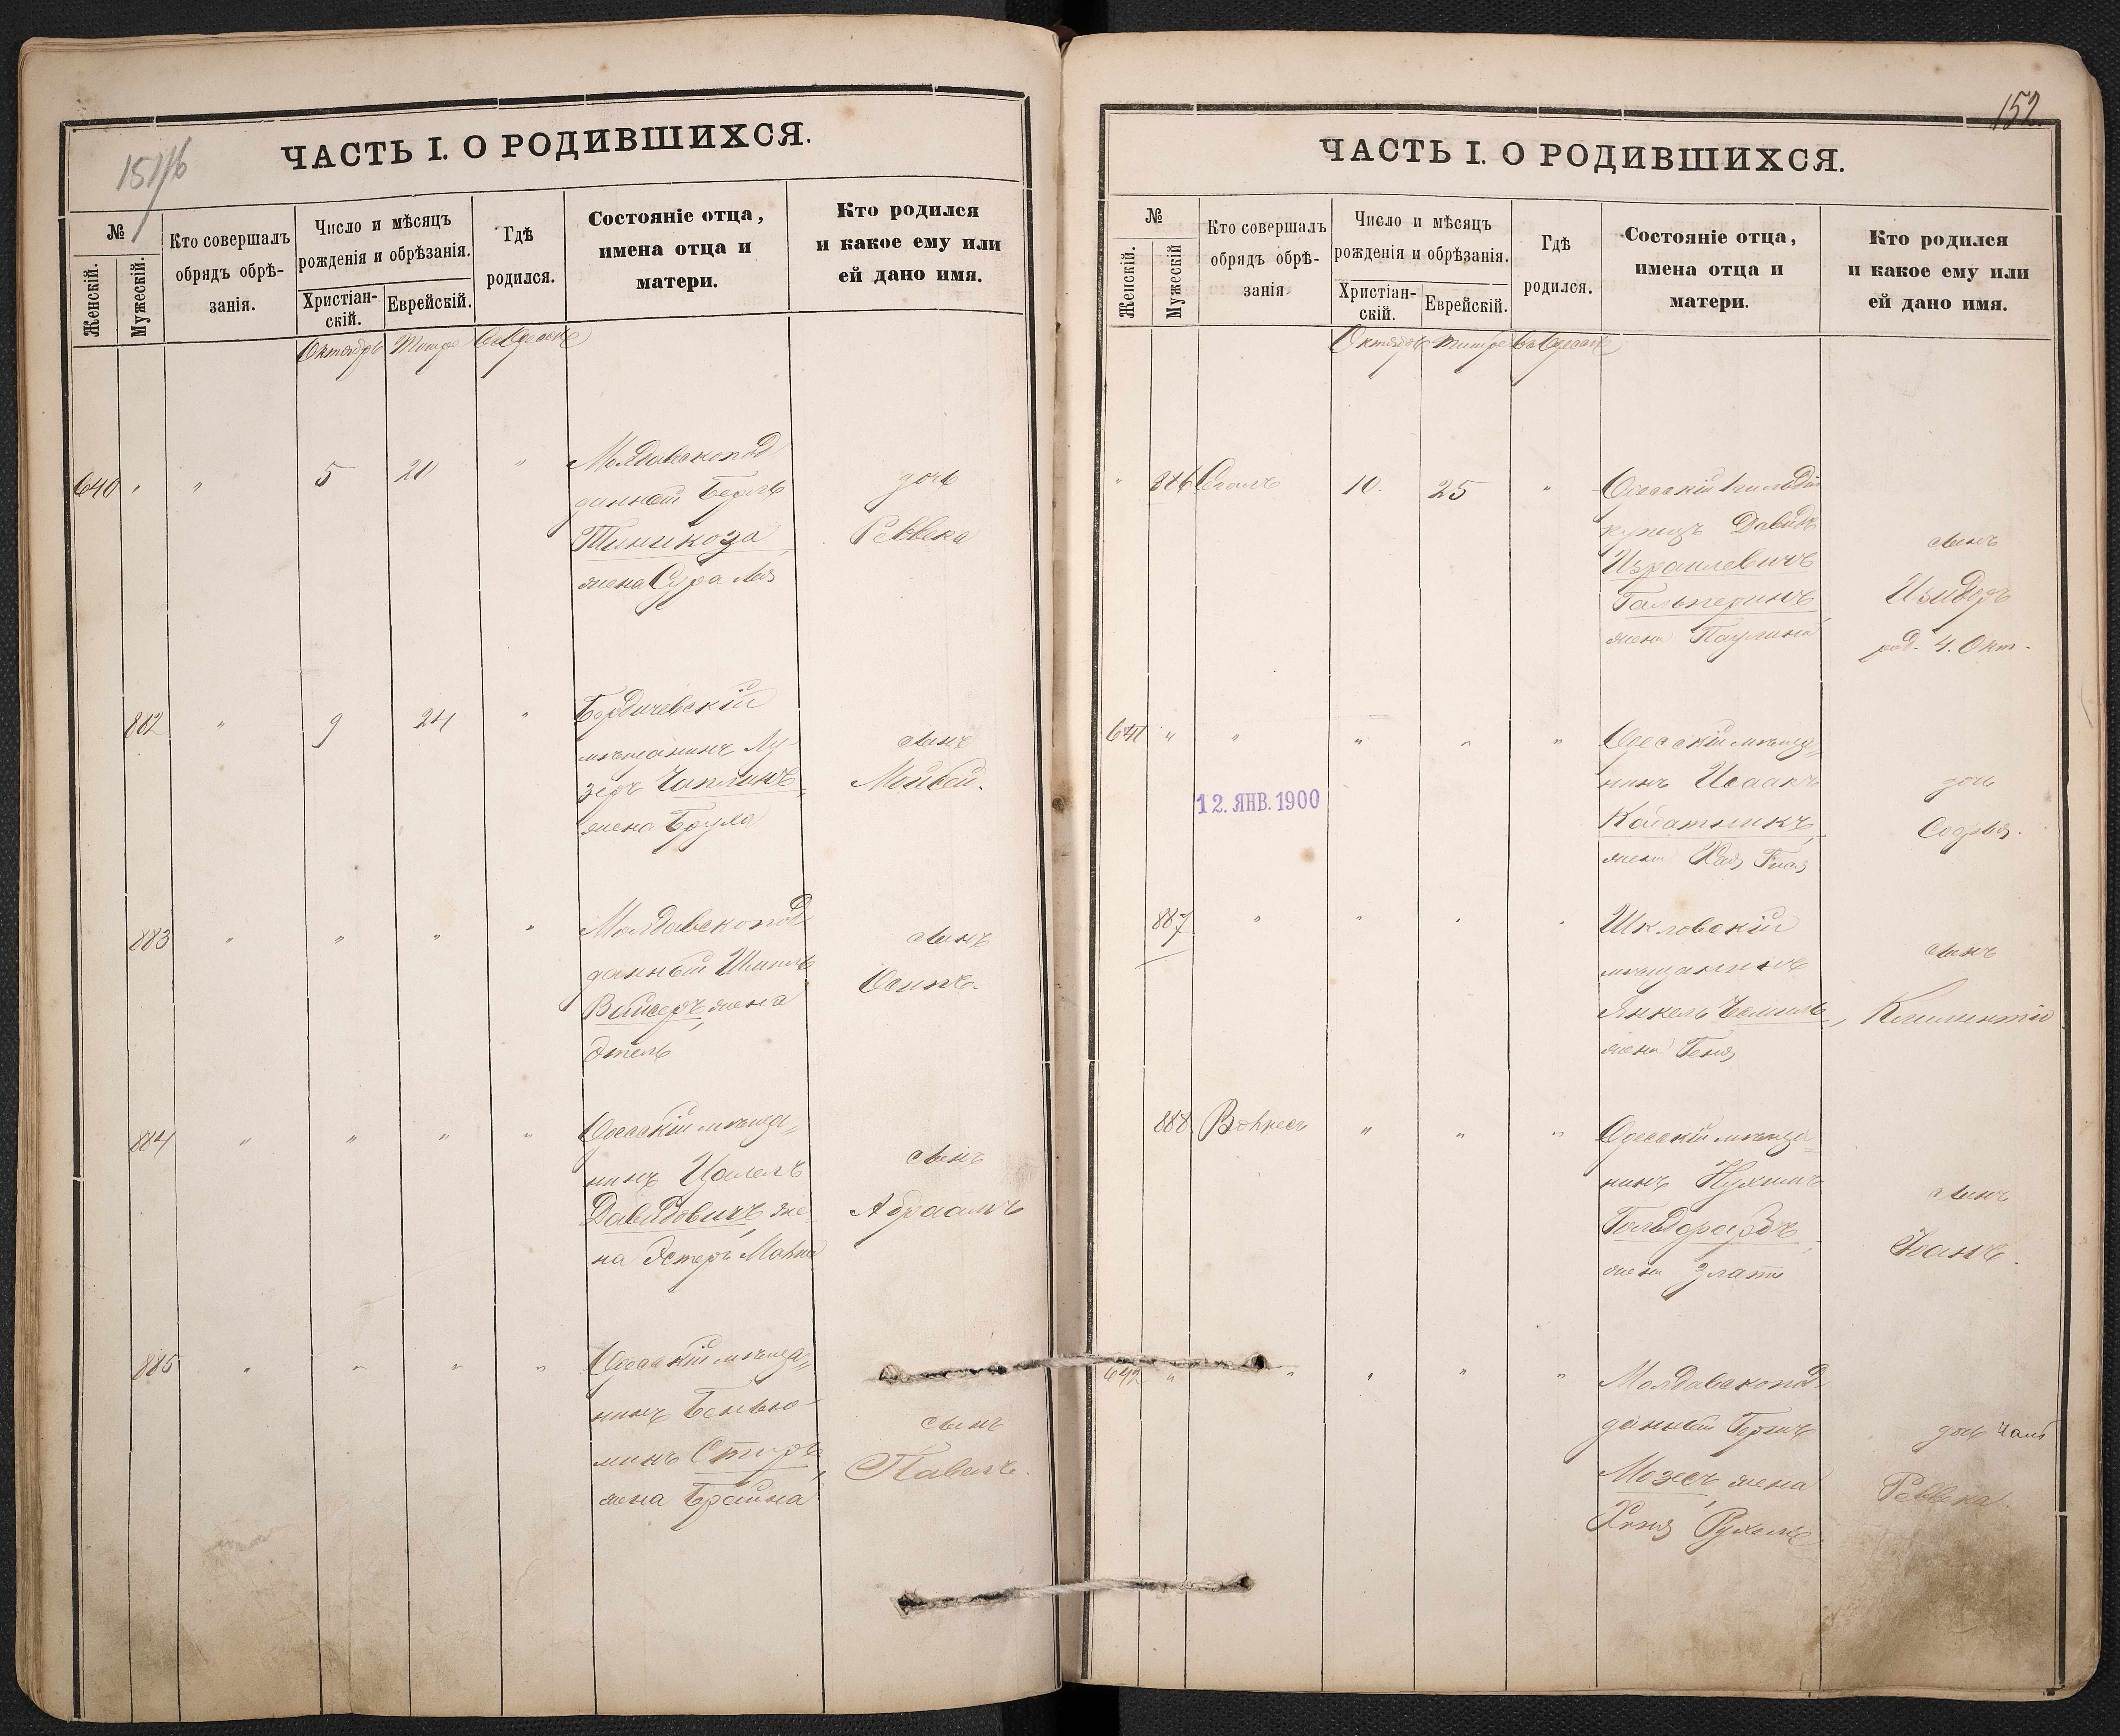 151/б
ЧАСТЬ I. О РОДИВШИХСЯ.
№
Женскій.
Мужескій.
Кто совершалъ
обрядъ обрѣ-
занія.
Число и мѣсяцъ
рожденія и обрѣзанія.
Христіан-
скій.
Еврейскій.
Гдѣ
родился.
Состояніе отца,
имена отца и
матери.
Кто родился
и какое ему или
ей дано имя.
Октябрь Тишре Въ Одессѣ
640 " " 5 20 "
Молдавскопод
данный Берль
жена Сура Лея
дочь
Реввека
882 " 9 24 "
Бердичевскій
мѣщанинъ Лу-
зеръ Чаплинъ,
жена Бруха
сынъ
Мойсей.
883 " " " "
Молдавскопод
данный Шмиль
Вайсеръ, жена
Этель
сынъ
Осипъ.
884 " " " "
Одесскій мѣща=
нинъ
Давидовичъ, же-
на Эстеръ Манна
сынъ
Абраамъ
885 " " " "
Одесскій мѣща=
нинъ Беньо-
минъ
жена Брайна
сынъ
Павелъ.
152.
ЧАСТЬ I. О РОДИВШИХСЯ.
№
Женскій.
Мужескій
Кто совершалъ
обрядъ обрѣ-
занія
Число и мѣсяцъ
рожденія и обрѣзанія.
Христіан-
скій.
Еврейскій.
Гдѣ
родился.
Состояніе отца,
имена отца и
матери.
Кто родился
и какое ему или
ей дано имя.
Октябрь Тишре Въ Одессѣ
" 886 10. 25 "
Одесскій 1 гильдіи
купецъ Давидъ
Израилевичъ
Гальперинъ,
жена Паулина
сынъ
Изидоръ
род. 4. Окт.
641 " " " " "
Одесскій мѣща=
нинъ Исаакъ
жена Хая
дочь
Софья.
12. ЯНВ. 1900
887 " " " "
Шкловскій
мѣщанинъ
Янкель
жена Геня
сынъ
Климентій
888. " " "
Одесскій мѣща=
нинъ Нухимъ
жена Злата
сынъ
642 " " " " "
Молдавскопод-
данный Берль
Мозесъ, жена
Рухель
дочь
Реввека.